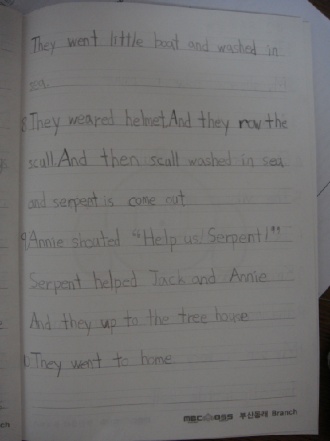 They went little boat and washed in
sea.
8. They weared helmet. And they row the
scull. And then scull washed in sea
and serpent is come out
9. Annie shouted "Help us! Serpent!"
Serpent helped Jack and Annie
And they up to the tree house
10. They went to home
부산동래 Branch